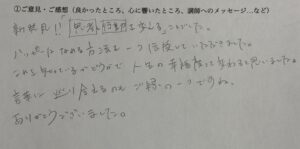 ①ご意見・ご感想（良かったところ、心に響いたところ、講師へのメッセージ…など）
新発見!!「思考と行動を変える」ことでした。
ハッピーになれる方法を一つ伝授していただきました。
これを知っているかどうかで人生の幸福度は変わると思いました。
言葉に巡り合えるのもご縁の一つですね。
ありがとうございました。